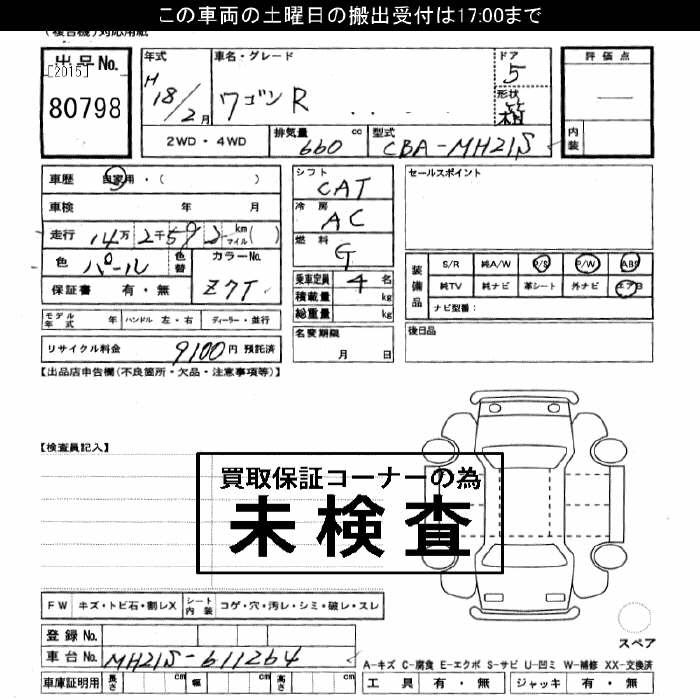 この車両の土曜日の搬出受付は17:00まで
(複合機)対応用紙
出品No. 年式 車名・グレード ドア 評価点
[2015] H 5
80798 18/2月 ワゴンR 形状 箱
2WD・4WD 排気量 660 cc 型式 CBA-MH21S 内装
車歴 自家用・( ) シフト CAT セールスポイント
車検 年 月 冷房 AC
走行 14万2千592 km マイル( ) 燃料 G
色 パール 色替 カラーNo. 乗車定員 4名 装備品 S/R 純A/W P/S P/W ABS
保証書 有・無 Z7T 積載量 kg 純TV 純ナビ 革シート 外ナビ エアB
総重量 kg ナビ型番:
モデル年式 年 ハンドル 左・右 ディーラー・並行 名変期限 月 日 後日品
リサイクル料金 9100円 預託済
【出品店申告欄(不良箇所・欠品・注意事項等)】
【検査員記入】
買取保証コーナーの為
未検査
FW キズ・トビ石・割レX シート内装 コゲ・穴・汚レ・シミ・破レ・スレ
登録No. スペア
車台No. MH21S-611264
A-キズ C-腐食 E-エクボ S-サビ U-凹ミ W-補修 XX-交換済
車庫証明用 長さ cm 幅 cm 高さ cm 工具 有・無 ジャッキ 有・無